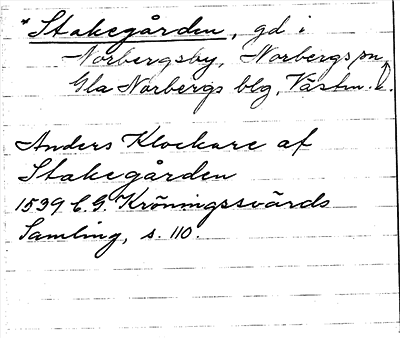 * Stakegården, gd i
Norbergsby, Norbergs sn,
Gla Norbergs blg, Västm. l.
Anders Klockare af
Stakegården
1539 C. G. Kröningssvärds
Samling, s. 110.